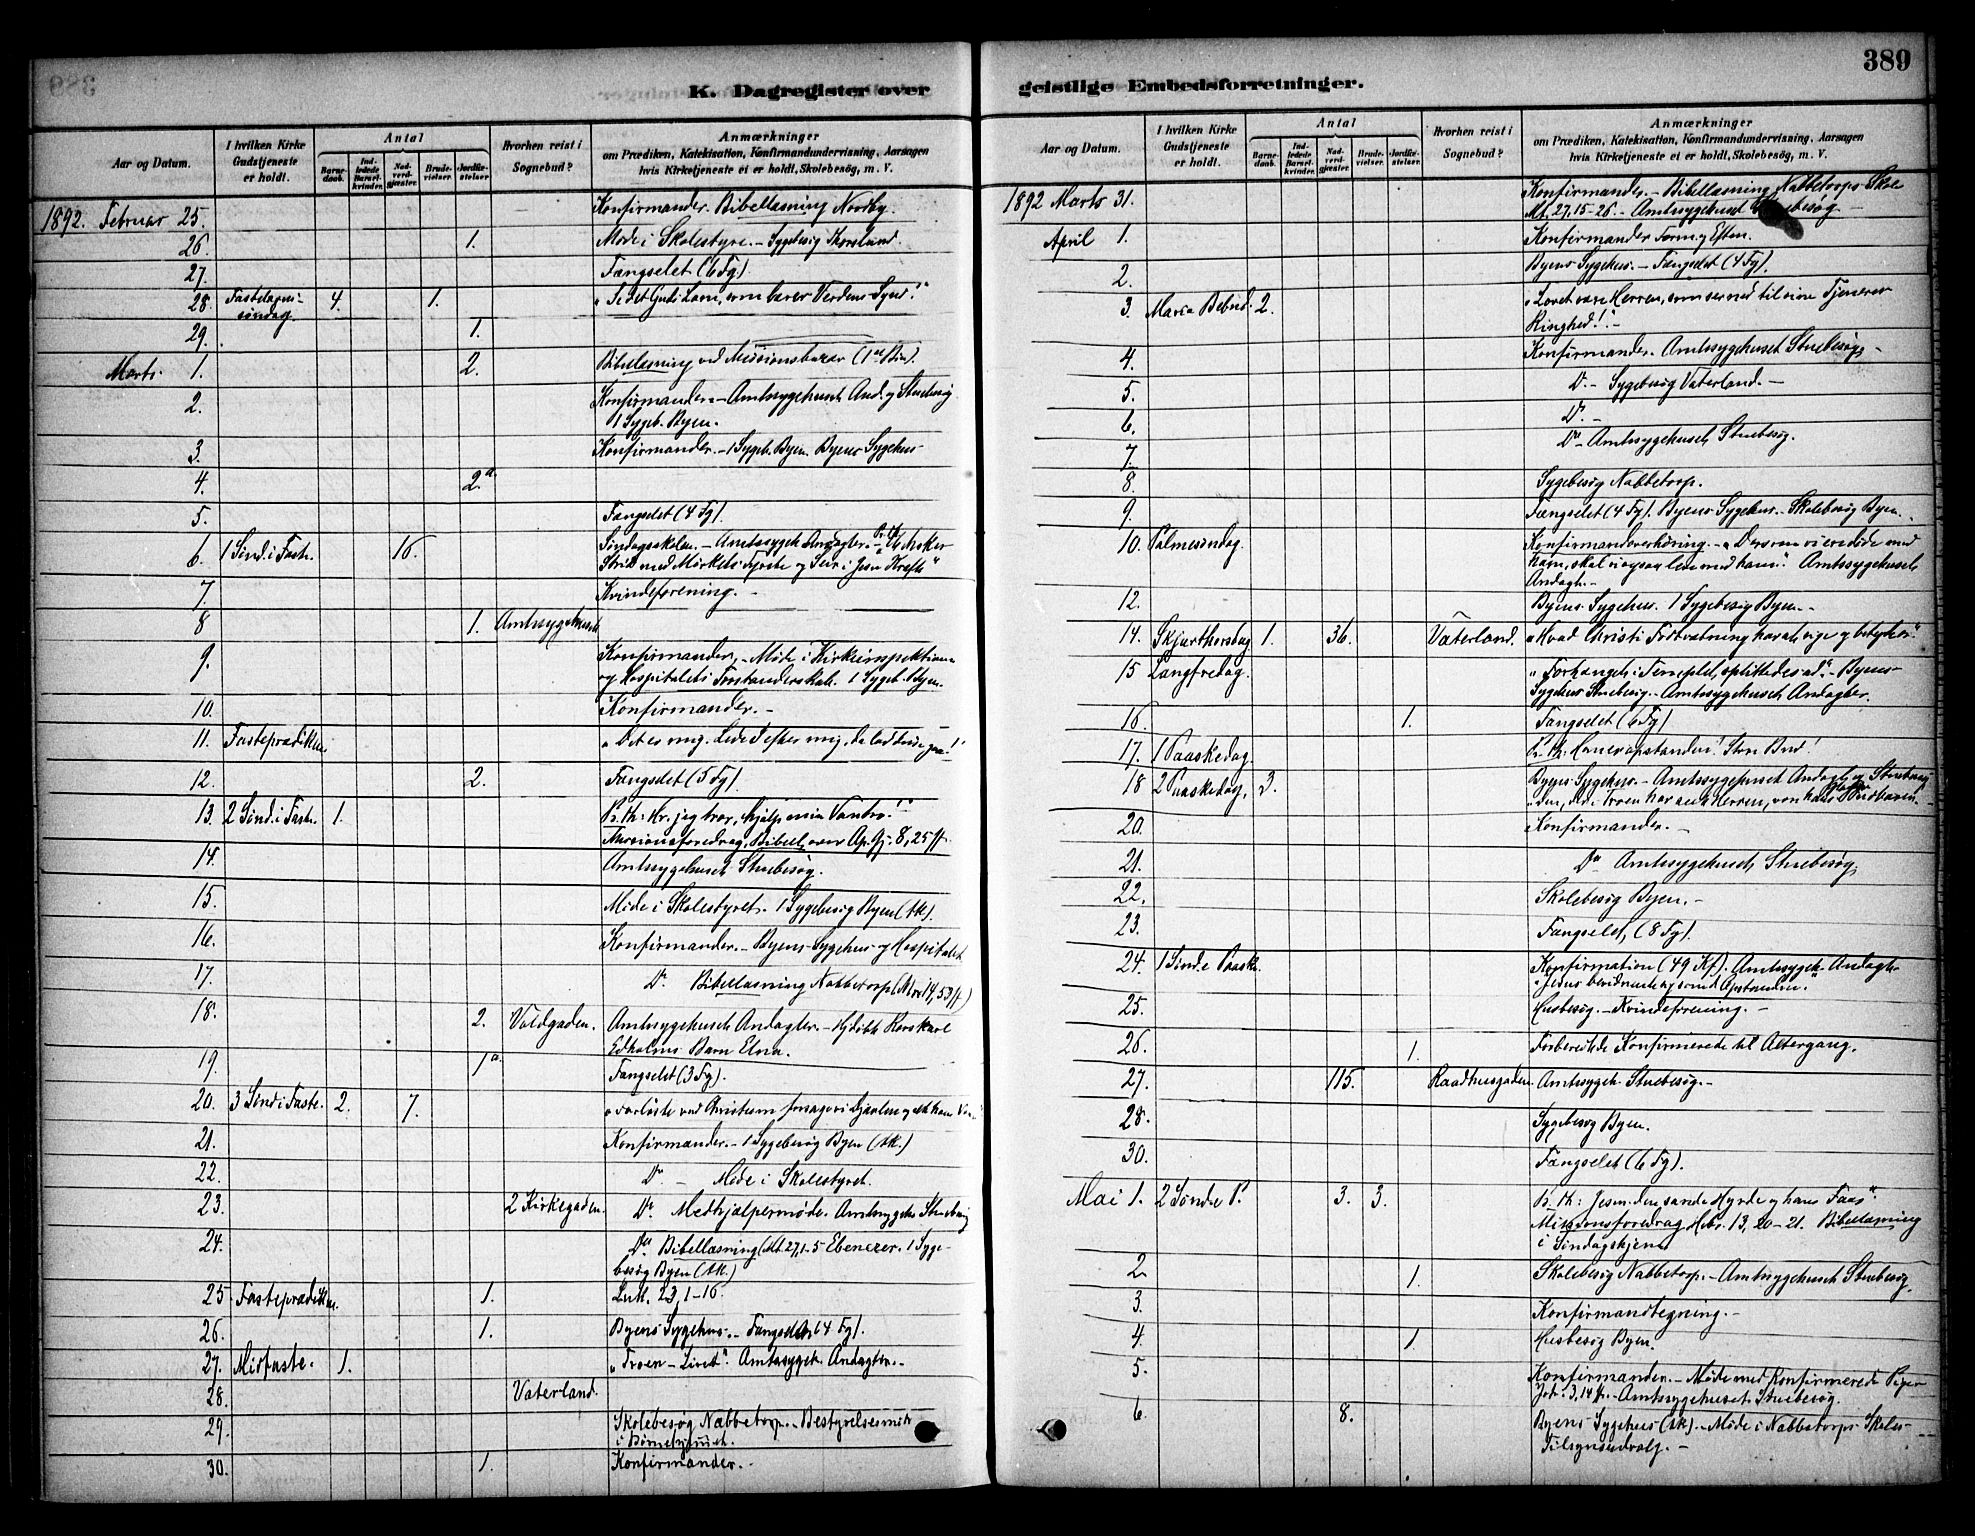 389
K. Dagregister over
Aar og Datum.
I hvilken Kirke Gudstjeneste er holdt.
Antal
Barne-daab.
Ind-ledede Barsel-kvinder.
Nad-verd-gjæster.
Brude-vielser.
Jordfæ-stelser.
Hvorhen reist i Sognebud?
Anmærkninger
om Prædiken, Katekisation, Konfirmandundervisning, Aarsagen
hvis Kirketjeneste ei er holdt, Skolebesøg, m. V.
1892. Februar 25. Konfirmander. Bibellæsning Norby.
26. 1. Møde i Skolestyre. - Sygebesøg
27. Fængselet (6 Fg).
28. Fastelavns-søndag 4. 1. "Se det Guds Lam, som bærer Verdens Synd!"
29. 1.
Marts. 1. 2. Bibellæsning ved Missionsbazar
2. Konfirmander. - Amtssygehuset And. og Stuebesøg
1 Sygeb. Byen.
3. Konfirmander. - 1 Sygeb. Byen. Byens Sygehus -
4. 2.a
5. Fængselet (4 Fg).
6. 1 Sönd. i Fast. 16. Søndagsskolen. - Amtssygeh. Andagter. -
Strid med Mørkets Fyrste og Seir i Jesu Kraft"
7. Kvindeforening. -
8 1. Amtssygehuset
9. Konfirmander. - Møde i Kirkeinspektionen
og Hospitalets Forstanderskab. 1 Sygeb. Byen.
10. Konfirmander. -
11. Fasteprædiken "Det er mig. Lede I efter mig, da lad disse gaa!"
12. 2. Fængselet (5 Fg).
13. 2 Sönd. i Fast. 1. Pr. Th: Hr. jeg tror, hjælp min Vantro!"
Missionsforedrag, Bibell. over Ap. Gj. 8, 25 ff.
14. Amtssygehuset Stuebesøg.
15. Møde i Skolestyret. 1 Sygebesøg Byen (Ak).
16. Konfirmander. - Byens Sygehus - og Hospitalet
17. Do Bibellæsning Nabbetorp (Mrc 14, 53 ff)
18. 2. Voldgaden. Amtssygehuset Andagter. -
Edholms Barn Elna.
19. 1a. Fængselet (3 Fg).
20. 3 Sönd i Faste. 2. 7. "Forløste ved Christum forsage vi Djævlen og alt hans Væsen
21. Konfirmander. - 1 Sygebesøg Byen (Ak.)
22. Do - Møde i Skolestyret.
23. 2 Kirkegaden. Do Medhjælpermøde. Amtssygehs Stuebesøg
24. Do Bibellæsning (Mt. 27, 1-5 Ebenezer. 1 Syge-
besøg Byen (Ak.)
25 Fasteprædiken. 1. Luk. 23, 1-16.
26. 1. Byens Sygehus. - Fængselet (4 Fg).
27. Midfaste. 1. "Troen - Livet". Amtssygeh. Andagter. -
28. Vaterland.
29. Skolebesøg Nabbetorp. - Bestyrelsesmøde
i Børnehjemmet.
30. 1. Konfirmander. -
389
geistlige Embedsforretninger.
Aar og Datum.
I hvilken Kirke Gudstjeneste er holdt.
Antal
Barne-daab.
Ind-ledede Barsel-kvinder.
Nad-verd-gjæster.
Brude-vielser.
Jordfæ-stelser.
Hvorhen reist i Sognebud?
Anmærkninger
om Prædiken, Katekisation, Konfirmandundervisning, Aarsagen
hvis Kirketjeneste ei er holdt, Skolebesøg, m. V.
1892 Marts 31. Konfirmander. - Bibellæsning Nabbetorps Skole
Mt. 27, 15-26 - Amtssygehuset Stuebesøg -
April 1. Konfirmander Form. og Efterm.
2. Byens Sygehus. - Fængselet (4 Fg).
3. Mariæ Bebud. 2. "Lovet være Herren, som ser ned til sine Tjeneres
Ringhed!" -
4. Konfirmander. Amtssygehuset Stuebesøg -
5. Do - Sygebesøg Vaterland. -
6. Do -
7. Do - Amtssygehuset Stuebesøg.
8. Sygebesøg Nabbetorp.
9. Fængselet (4 Fg). Byens Sygehus. - Skolebesøg Byen.
10. Palmesøndag. Konfirmandoverhöring. - "Dersom vi ere døde med
ham, skal vi ogsaa leve med ham." Amtssygehuset
Andagt. -
12. Byens Sygehus. 1 Sygebesøg Byen. -
14. Skjærthorsdag 1. 36. Vaterland. "Hvad Christi Fodtvætning har at sige og betyde".
15 Langfredag. "Forhænget i Templet splittedes ad". - Byens
Sygehus Stuebesøg. - Amtssygehuset Andagter.
16 1. Fængselet (6 Fg)
17. 1 Paaskedag. Pr. Th: Han er opstanden! Stor Bod!
18 2 Paaskedag, 3. Byens Sygehus. - Amtssygehuset Andagt og Stuebesøg
20. Konfirmander. -
21. Do Amtssygehuset Stuebesøg.
22. Skolebesøg Byen. -
23. Fængselet, (8 Fg).
24. 1 Sønd. e Paaske. Konfirmation (49 Kf). Amtssygeh. Andagt.
25. Husbesøg. - Kvindeforening. -
26. 1. Forberedede Konfirmerede til Altergang.
27. 115. Raadhusgaden. Amtssygeh. Stuebesøg. -
28. Sygebesøg Byen.
30. Fængselet (6 Fg).
Mai 1. 2 Sønd e P. 3. 3. Pr. Th: Jesus den sande Hyrde og hans Faar".
Missionsforedrag Hebr. 13, 20-21. Bibellæsning
i
2 1. Skolebesøg Nabbetorp. - Amtssygehuset Stuebesøg.
3. Konfirmandtegning. -
4. 1. Husbesøg Byen.
5. Konfirmander. - Møde med Konfirmerede Piger
Joh. 3, 14 ff. - Amtssygehuset Stuebesøg.
6. 8. Byens Sygehus (Ak). - Møde i Nabbetorps Skoles
Tilsynsudvalg. -